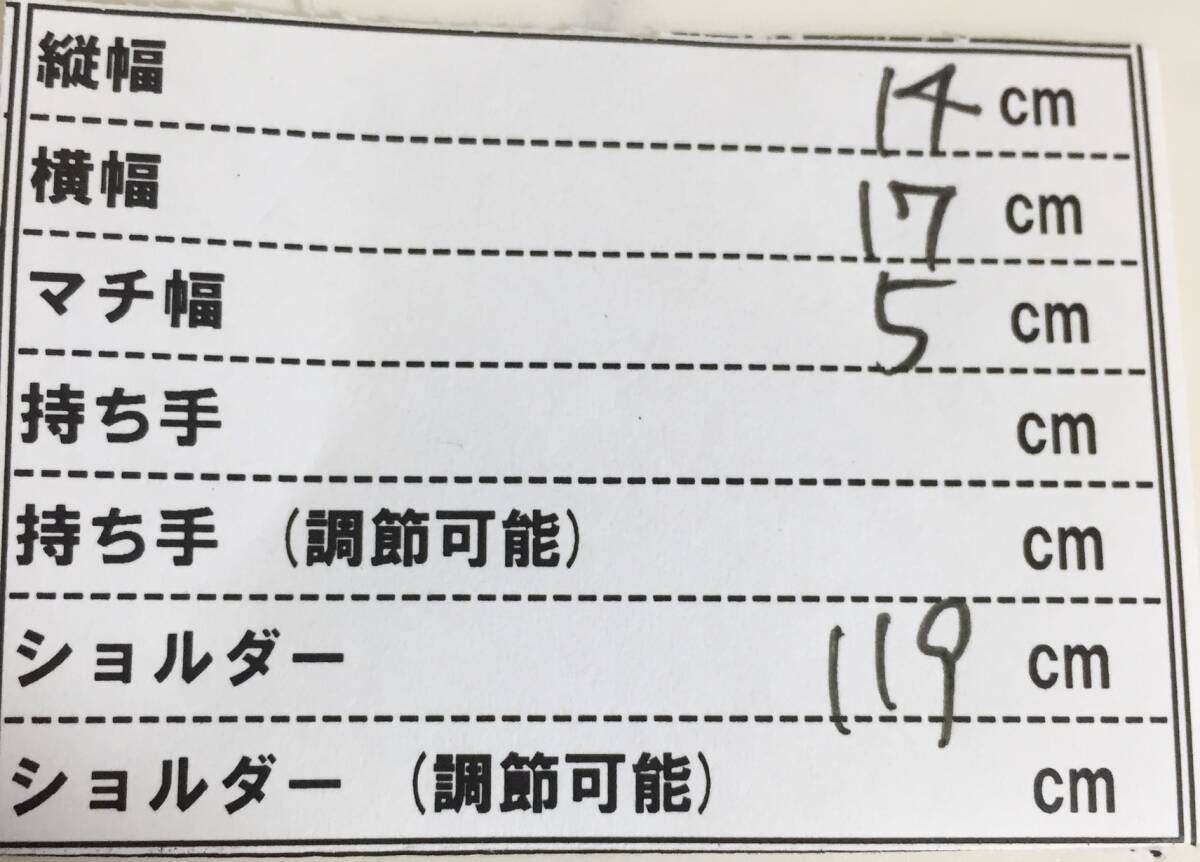 縦幅 14 cm
横幅 17 cm
マチ幅 5 cm
持ち手 cm
持ち手 (調節可能) cm
ショルダー 119 cm
ショルダー (調節可能) cm